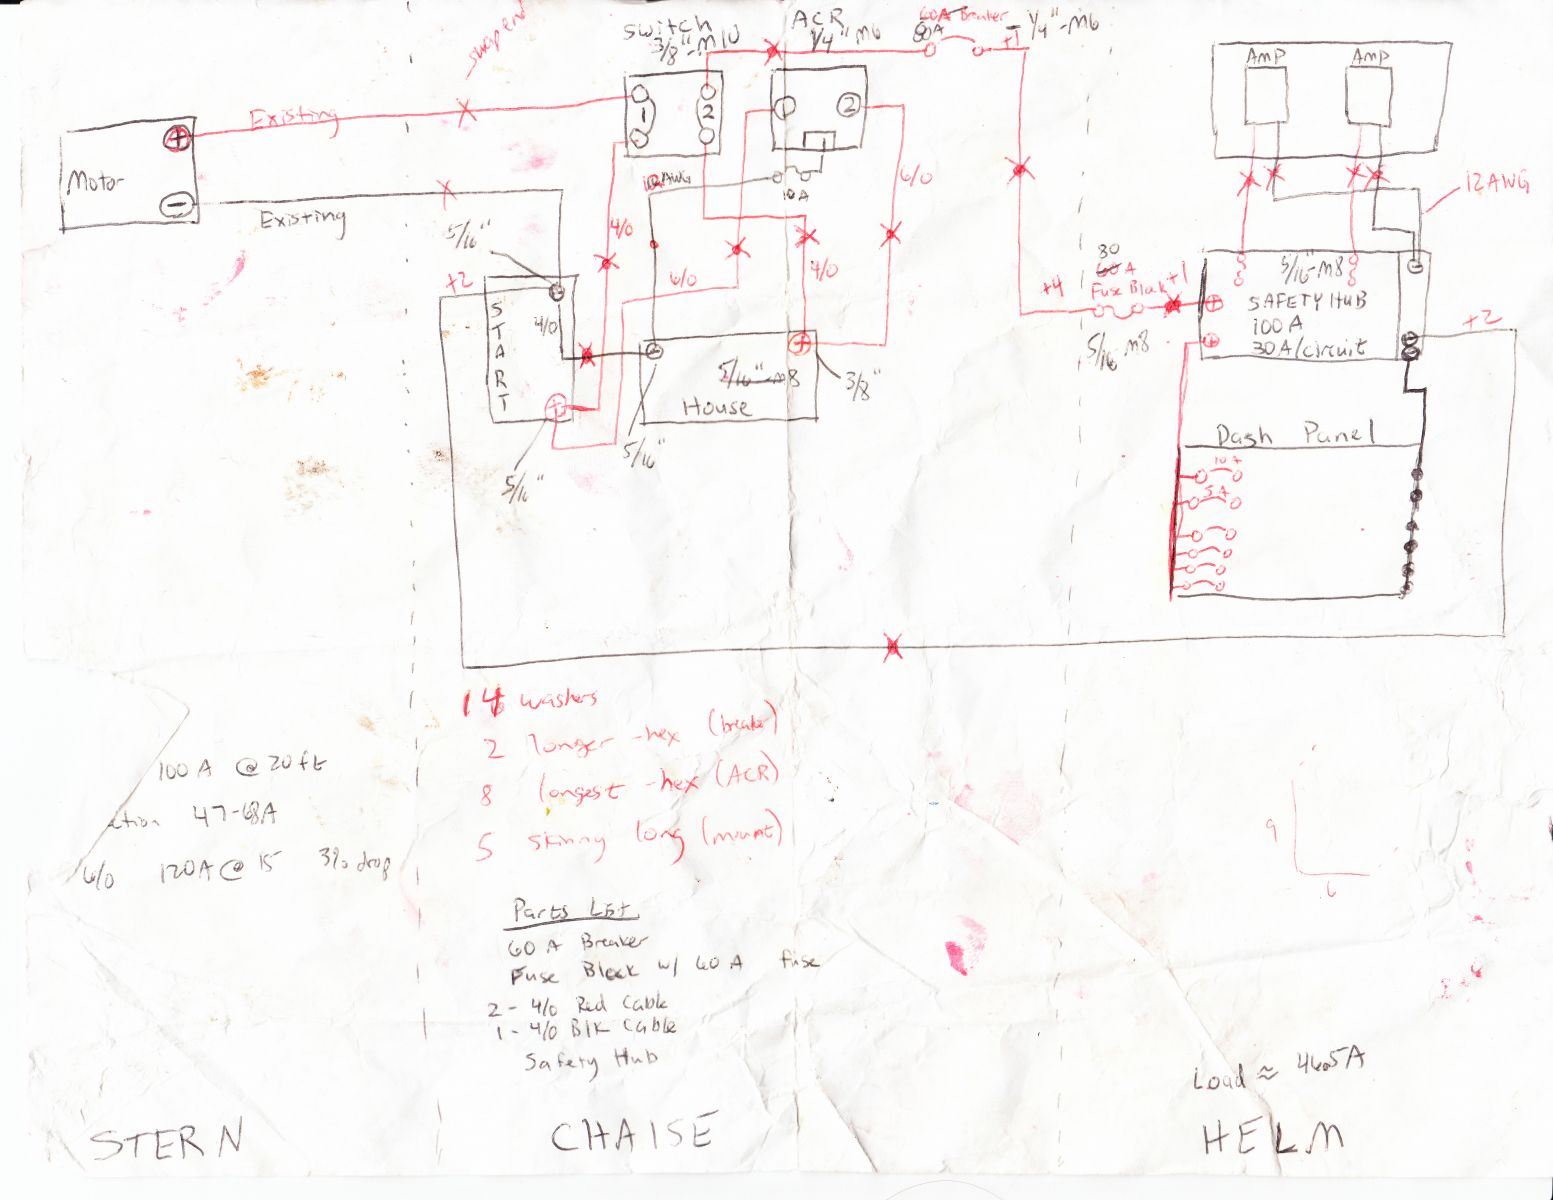 swap end
Switch
3/8"-M10
ACR
1/4" M6
60A Breaker
80A
+1
1/4"-M6
Amp
Amp
Existing
1
2
2
+
Motor
-
Existing
10AWG
10A
4/0
6/0
12 AWG
5/16"
+2
START
4/0
6/0
4/0
80
60 A
Fuse Block
+1
+4
5/16 M8
5/16-M8
SAFETY HUB
100 A
30A/circuit
+2
5/16"-M8
House
3/8"
5/16"
5/16"
Dash Panel
10A
5A
14 washers
2 longer -hex (breaker)
8 longest -hex (ACR)
5 skinny long (mount)
100 A @ 20 ft
ation 47-68A
6/0 120A @ 15 3% drop
9
6
Parts List
60 A Breaker
Fuse Block w/ 60 A fuse
2 - 4/0 Red Cable
1 - 4/0 Blk Cable
Safety Hub
Load ≈ 46.5A
STERN
CHAISE
HELM